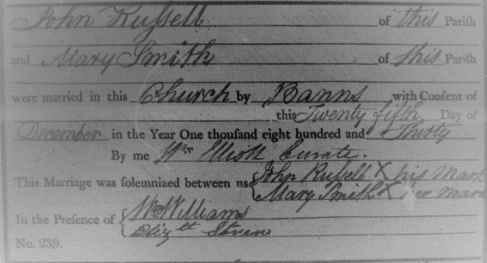 John Russell of this Parish
and Mary Smith of this Parish
were married in this Church by Banns with Consent of
this Twenty fifth Day of
December in the Year One thousand eight hundred and Thirty
By me Wm Elliott Curate.
This Marriage was solemnized between us John Russell X his Mark
Mary Smith X her mark
In the Presence of W Williams
Elizth Stevens
No. 239.